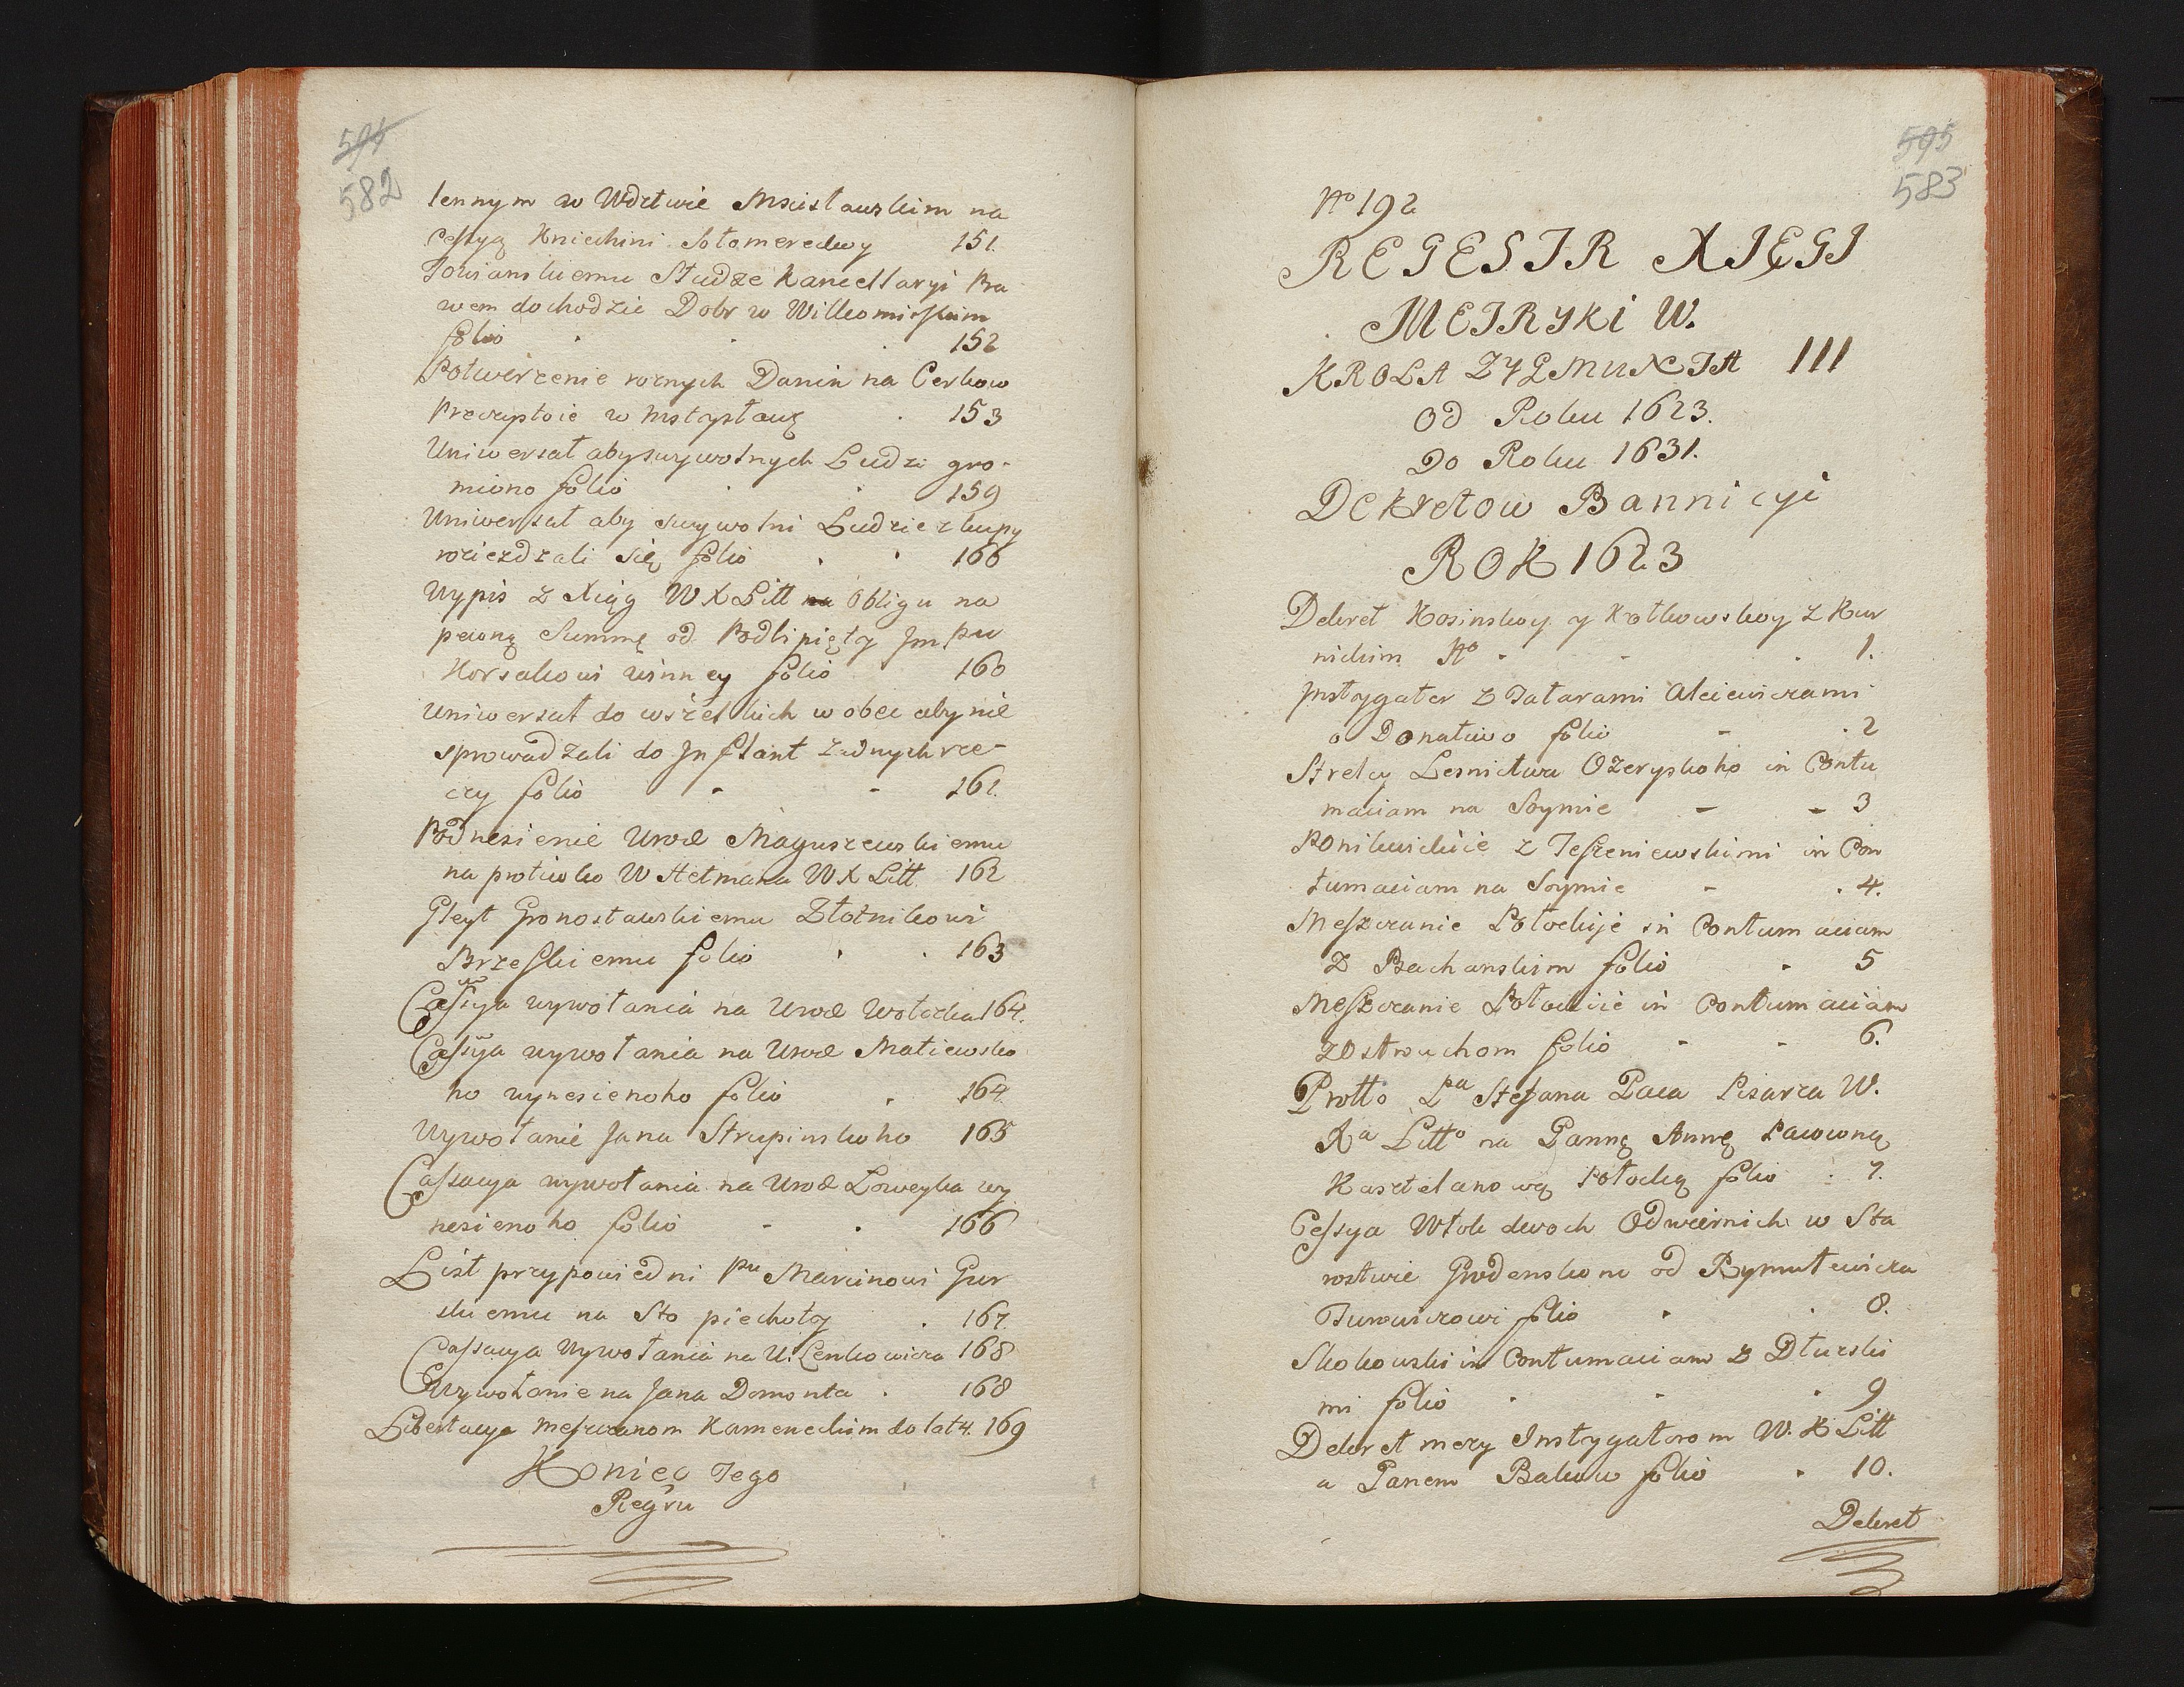 594
582
lennym w Wdztwie Mscisławskim na
Cessyą Kniechini Sołomereckoy 151.
Towianskiemu Słudze Kancellaryi Pra
wem dochodzic Dobr w Wilkomirskim
folio 152
Potwierzenie roznych Danin na Cerkow
Preczystoie w Mstysławę 153
Uniwersał aby swywolnych Ludzi gro-
miono folio 159
Uniwersał aby swywolni Ludzie z kupy
roziezdzali się folio 166
Wypis z Xiąg W X Litt na Obligu na
pewną Summę od Podlipięty Jm Pu
Korsakowi winney folio 160
Uniwersał do wszelkich w obec aby nie
sprowadzali do Inflant zadnych rze-
czy folio 161.
Podnesienie Urod Maguszewskiemu
na protiwko W Hetmana W X Litt 162
Gleyt Gronostawskiemu Złotnikowi
Brzeskiemu folio 163
Cassya wywołania na Urod Wołocka 164.
Cassya wywołania na Urod Matiewsko
ho wynesienoho folio 164.
Wywołanie Jana Strupinskoho 165
Cassacya wywołania na Urod Loweyka wy
nesienoho folio 166
List przypowiedni Pu Marcinowi Gur
skiemu na Sto piechoty 167.
Cassacya Wywołania na U. Lenkowicza 168
Wywołanie na Jana Domonta 168
Libertacya Meszczanom Kameneckim do lat 4. 169
Koniec Tego
Regru
595
583
No 192
REGESTR XIĘGI
METRYKI W.
KROLA ZYGMUNTA III
Od Roku 1623.
Do Roku 1631.
Dekretow Bannicyi
ROK 1623
Dekret Kosinskoy y Kotkowskoy z Kur
nickim No 1.
Instygator z Tatarami Alciewiczami
o Donatiwo folio 2
Strelcy Lesnictwa Ozeryskoho in Contu
maciam na Soymie 3
Ponikwickiie z Teszeniewskimi in Con
tumaciam na Soymie 4.
Meszczanie Połockije in Contumaciam
z Bachanskim folio 5
Meszczanie Połockiie in Contumaciam
zOstrouchom folio 6.
Protto Pa Stefana Paca Pisarza W.
Xa Litto na Pannę Annę Pacowną
Kasztelanowę Połocką folio 7.
Cessya Włok dwoch Odwiernich w Sta
rostwie Grodenskom od Rymutewicza
Turowiczowi folio 8.
Skokowski in Contumaciam z Dłuzski
mi folio 9
Dekret mezy Instygatorom W. X Litt
a Panem Bakow folio 10.
Dekret